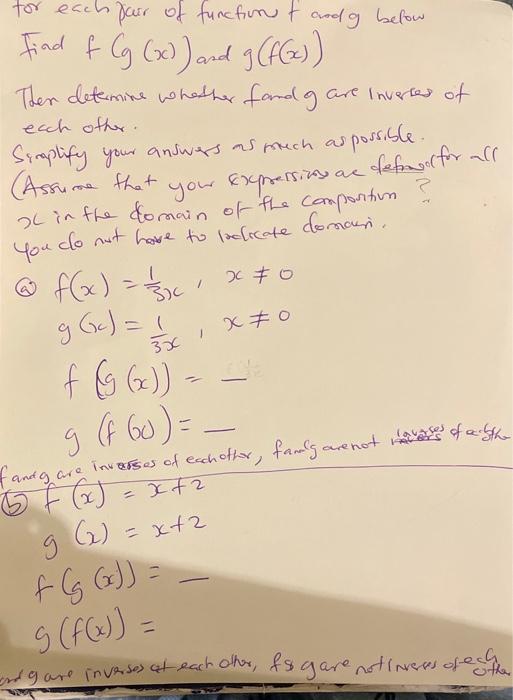 for each pair of functions f and g below
Find f (g (x)) and g(f(x))
Then determine whether f and g are Inverses of
each other.
Simplify your answers as much as possible.
(Assume that your expressions are defined for all
x in the domain of the composition ?
You do not have to indicate domain.
ⓐ f(x) = 1/3x , x ≠ 0
g(x) = 1/3x , x ≠ 0
f (g (x)) = —
g (f (x)) = —
f and g are inverses of each other, f and g are not inverses of each other
ⓑ f (x) = x+2
g (x) = x+2
f (g (x)) = —
g (f(x)) =
and g are inverses of each other, f & g are not inverses of each other